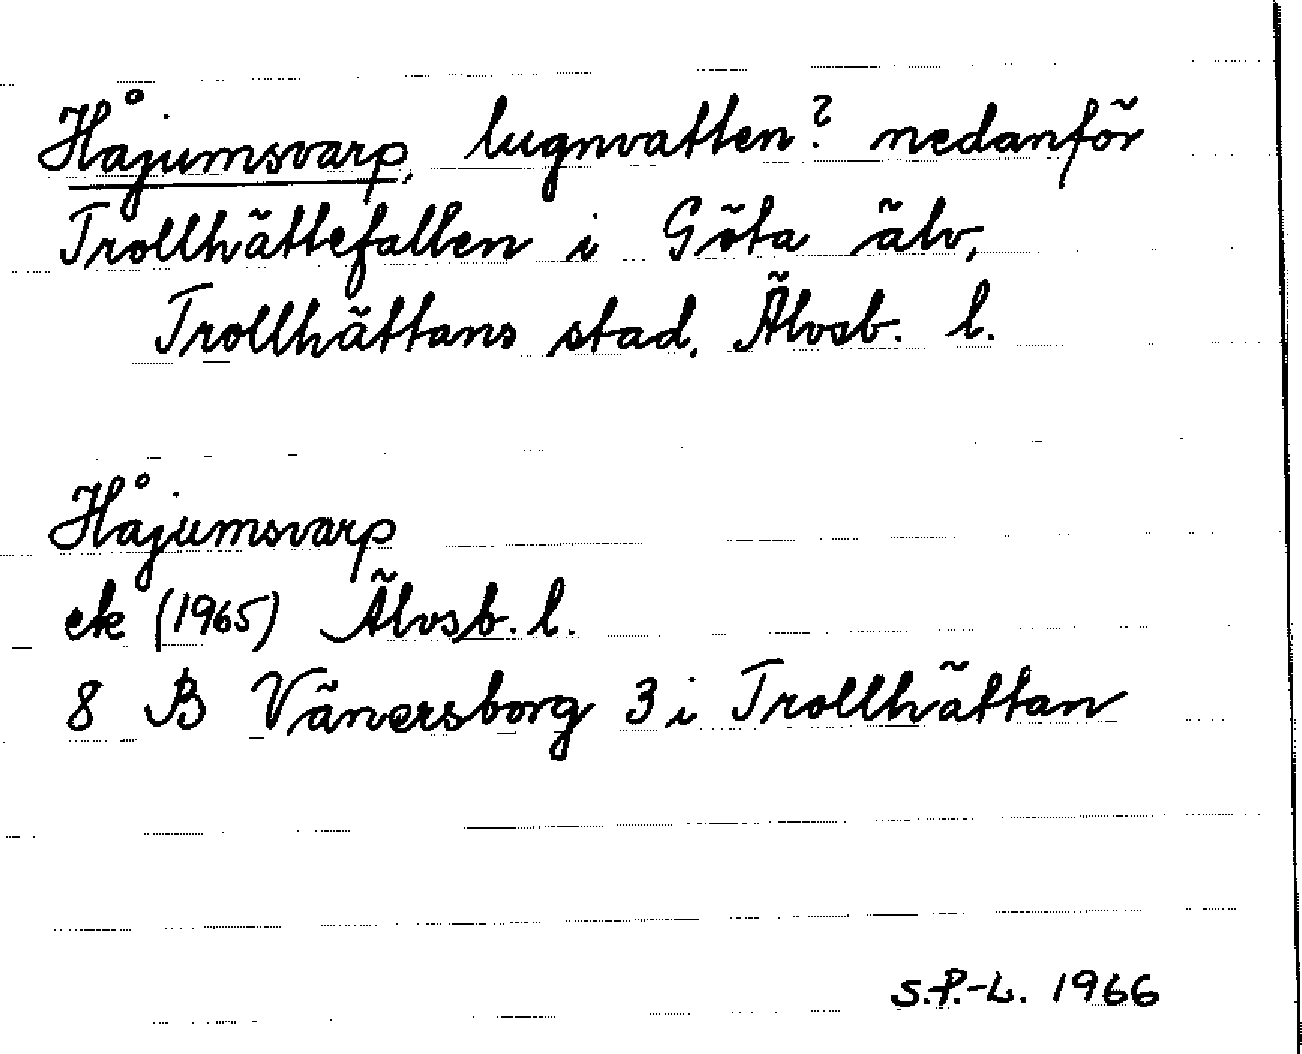 Håjumsvarp, lugnvatten? nedanför
Trollhättefallen i Göta älv,
Trollhättans stad, Älvsb. l.
Håjumsvarp
ek (1965) Älvsb. l.
8 B Vänersborg 3 i Trollhättan
S.P.-L. 1966